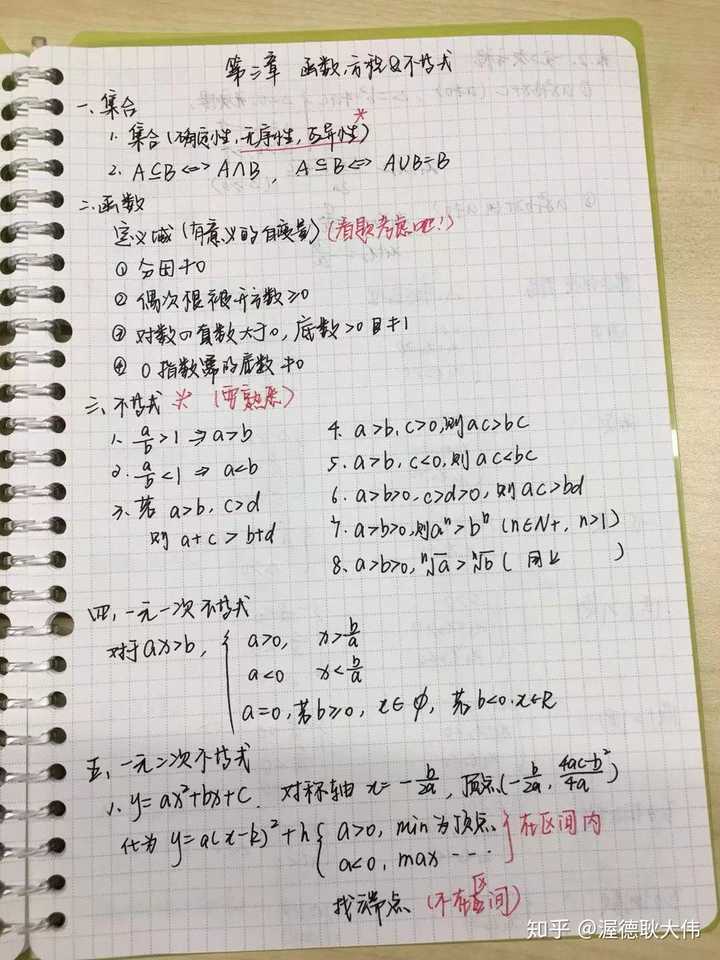 第三章 函数、方程&不等式
一、集合
1. 集合(确定性,无序性,互异性) *
2. A⊆B⇔A∩B, A⊆B⇔A∪B=B
二、函数
定义域(有意义的自变量)(看题考虑吧!)
① 分母≠0
② 偶次根被开方数≥0
③ 对数の真数大于0, 底数>0且≠1
④ 0指数幂的底数≠0
三、不等式 * (要熟悉)
1. a/b>1 ⇒ a>b
2. a/b<1 ⇒ a<b
3. 若 a>b, c>d
则 a+c>b+d
4. a>b, c>0,则ac>bc
5. a>b, c<0, 则 ac<bc
6. a>b>0, c>d>0, 则 ac>bd
7. a>b>0,则aⁿ>bⁿ (n∈N+, n>1)
8. a>b>0, ⁿ√a>ⁿ√b ( 同上 )
四、一元一次不等式
对于ax>b, { a>0, x>b/a
a<0 x<b/a
a=0,若b≥0, x∈∅, 若b<0,x∈R
五、一元二次不等式
1. y=ax²+bx+c. 对称轴 x=-b/2a, 顶点(-b/2a, (4ac-b²)/4a)
化为 y=a(x-k)²+h { a>0, min为顶点 } 在区间内
a<0, max ---
找端点 (不在区间)
知乎 @渥德耿大伟